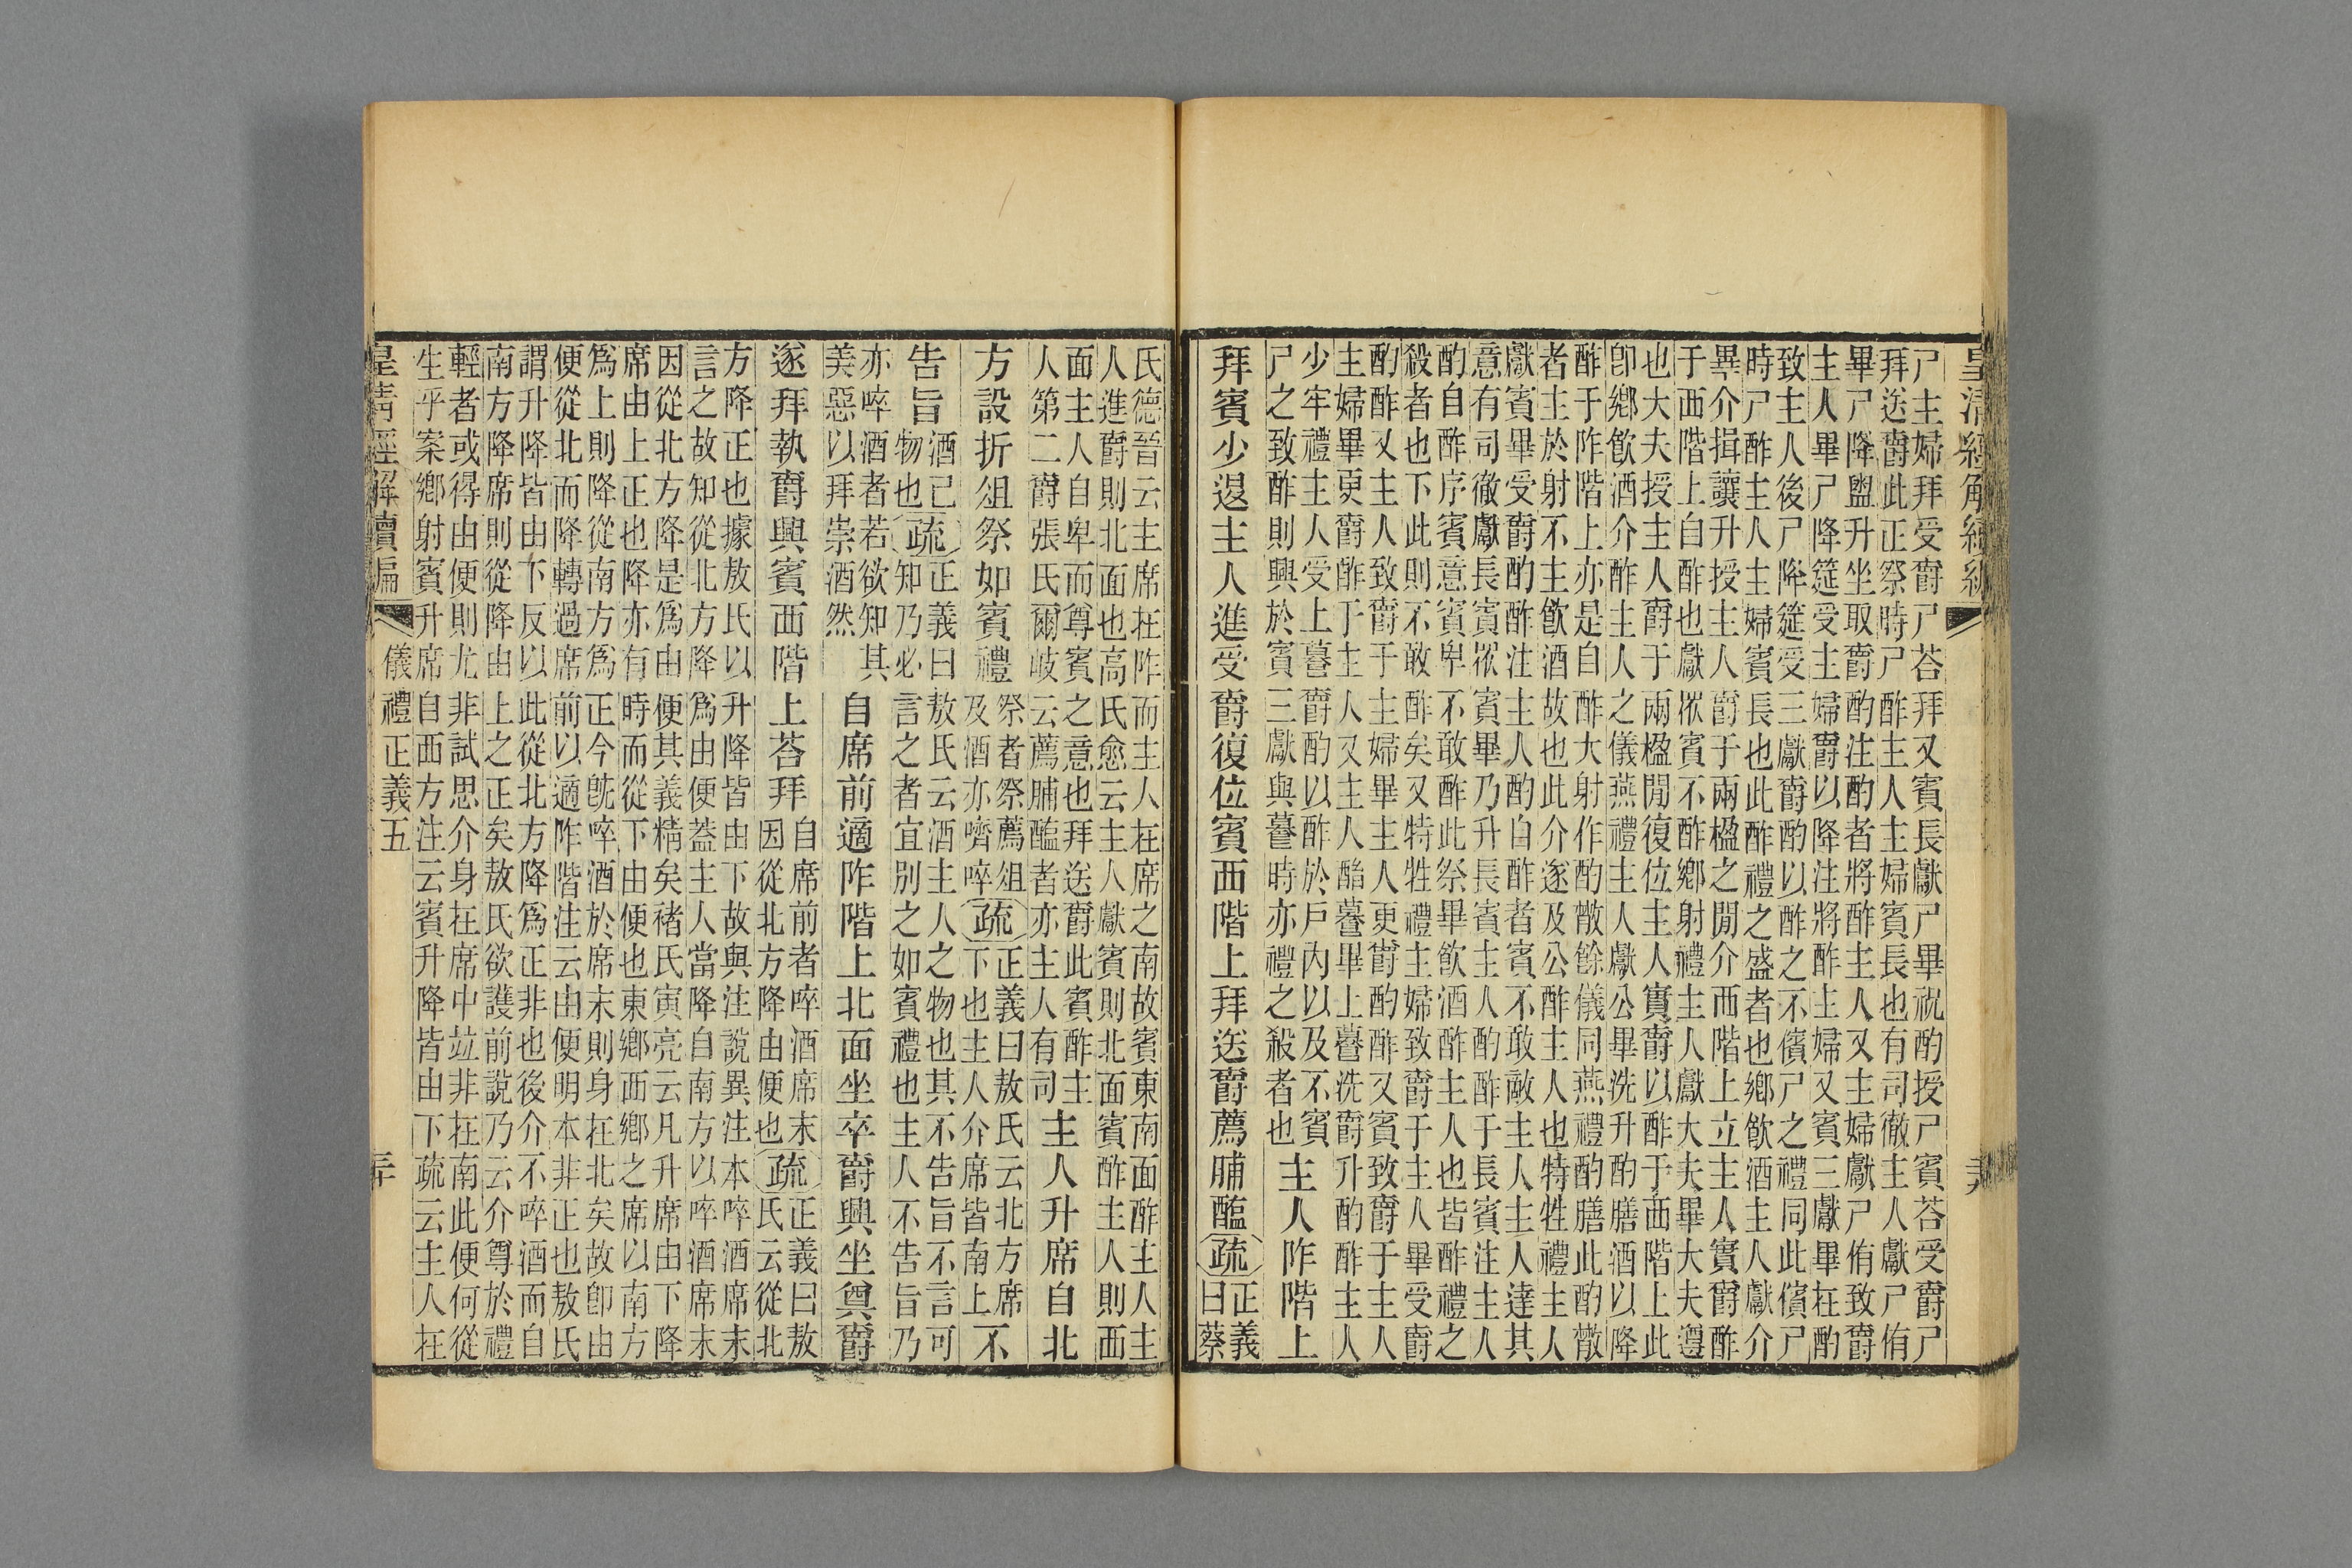 皇清經解續編
尸主婦拜受爵尸荅拜又賓長獻尸畢祝酌授尸賓荅受爵尸
拜送爵此正祭時尸酢主人主婦賓長也有司徹主人獻尸侑
畢尸降盥升坐取爵酌注酌者將酢主人又主婦獻尸侑致爵
主人畢尸降筵受主婦爵以降注將酢主婦又賓三獻畢在酌
致主人後尸降筵受三獻爵酌以酢之不儐尸之禮同此儐尸
時尸酢主人主婦賓長也此酢禮之盛者也鄉飲酒主人獻介
畢介揖讓升授主人爵于兩楹之閒介西階上立主人實爵酢
于西階上自酢也獻眾賓不酢鄉射禮主人獻大夫畢大夫遵
也大夫授主人爵于兩楹閒復位主人實爵以酢于西階上此
卽鄉飲酒介酢主人之儀燕禮主人獻公畢洗升酌膳酒以降
酢于阼階上亦是自酢大射作酌散餘儀同燕禮酌膳此酌散
者主於射不主飲酒故也此介遂及公酢主人也特牲禮主人
獻賓畢受爵酌酢注主人酌自酢者賓不敢敵主人主人達其
意有司徹獻長賓眾賓畢乃升長賓主人酌酢于長賓注主人
酌自酢序賓意賓卑不敢酢此祭畢飲酒酢主人也皆酢禮之
殺者也下此則不敢酢矣又特牲禮主婦致爵于主人畢受爵
酌酢又主人致爵于主婦畢主人更爵酌酢又賓致爵于主人
主婦畢更爵酢于主人又主人酳畢上洗爵升酌酢主人
少牢禮主人受上爵酌以酢於戶內以及不賓
尸之致酢則興於賓三獻與時亦禮之殺者也
主人阼階上
拜賓少退主人進受爵復位賓西階上拜送爵薦脯醢疏正義
曰蔡
氏德晉云主席在阼而主人在席之南故賓東南面酢主人主
人進爵則北面也高氏愈云主人獻賓則北面賓酢主人則西
面主人自卑而尊賓之意也拜送爵此賓酢主
人第二爵張氏爾岐云薦脯醢者亦主人有司
主人升席自北
方設折俎祭如賓禮
祭者祭薦俎
及酒亦嚌啐
疏
正義曰敖氏云北方席
下也主人介席皆南上
不
告旨
酒已
物也
疏
正義曰敖氏云酒主人之物也其不告旨不言可
知乃必言之者宜別之如賓禮也主人不告旨乃
亦啐酒者若欲知其
美惡以拜崇酒然
自席前適阼階上北面坐卒爵興坐奠爵
遂拜執爵興賓西階上荅拜
自席前者啐酒席末
因從北方降由便也
疏
正義曰敖
氏云從北
方降正也據敖氏以升降皆由下故與注說異注本啐酒席末
言之故知從北方降爲由便蓋主人當降自南方以啐酒席末
因從北方降是爲由便其義精矣褚氏寅亮云凡升席由下降
席由上正也降亦有時而從下由便也東鄉西鄉之席以南方
爲上則降從南方爲正今旣啐酒於席末則身在北矣故卽由
便從北而降轉過席前以適阼階注云由便明本非正也敖氏
謂升降皆由下反以此從北方降爲正非也後介不啐酒而自
南方降席則從降由上之正矣敖氏欲護前說乃云介尊於禮
輕者或得由便則尤非試思介身在席中竝非在南此便何從
生乎案鄉射賓升席自西方注云賓升降皆由下疏云主人在
皇清經解續編
儀禮正義五